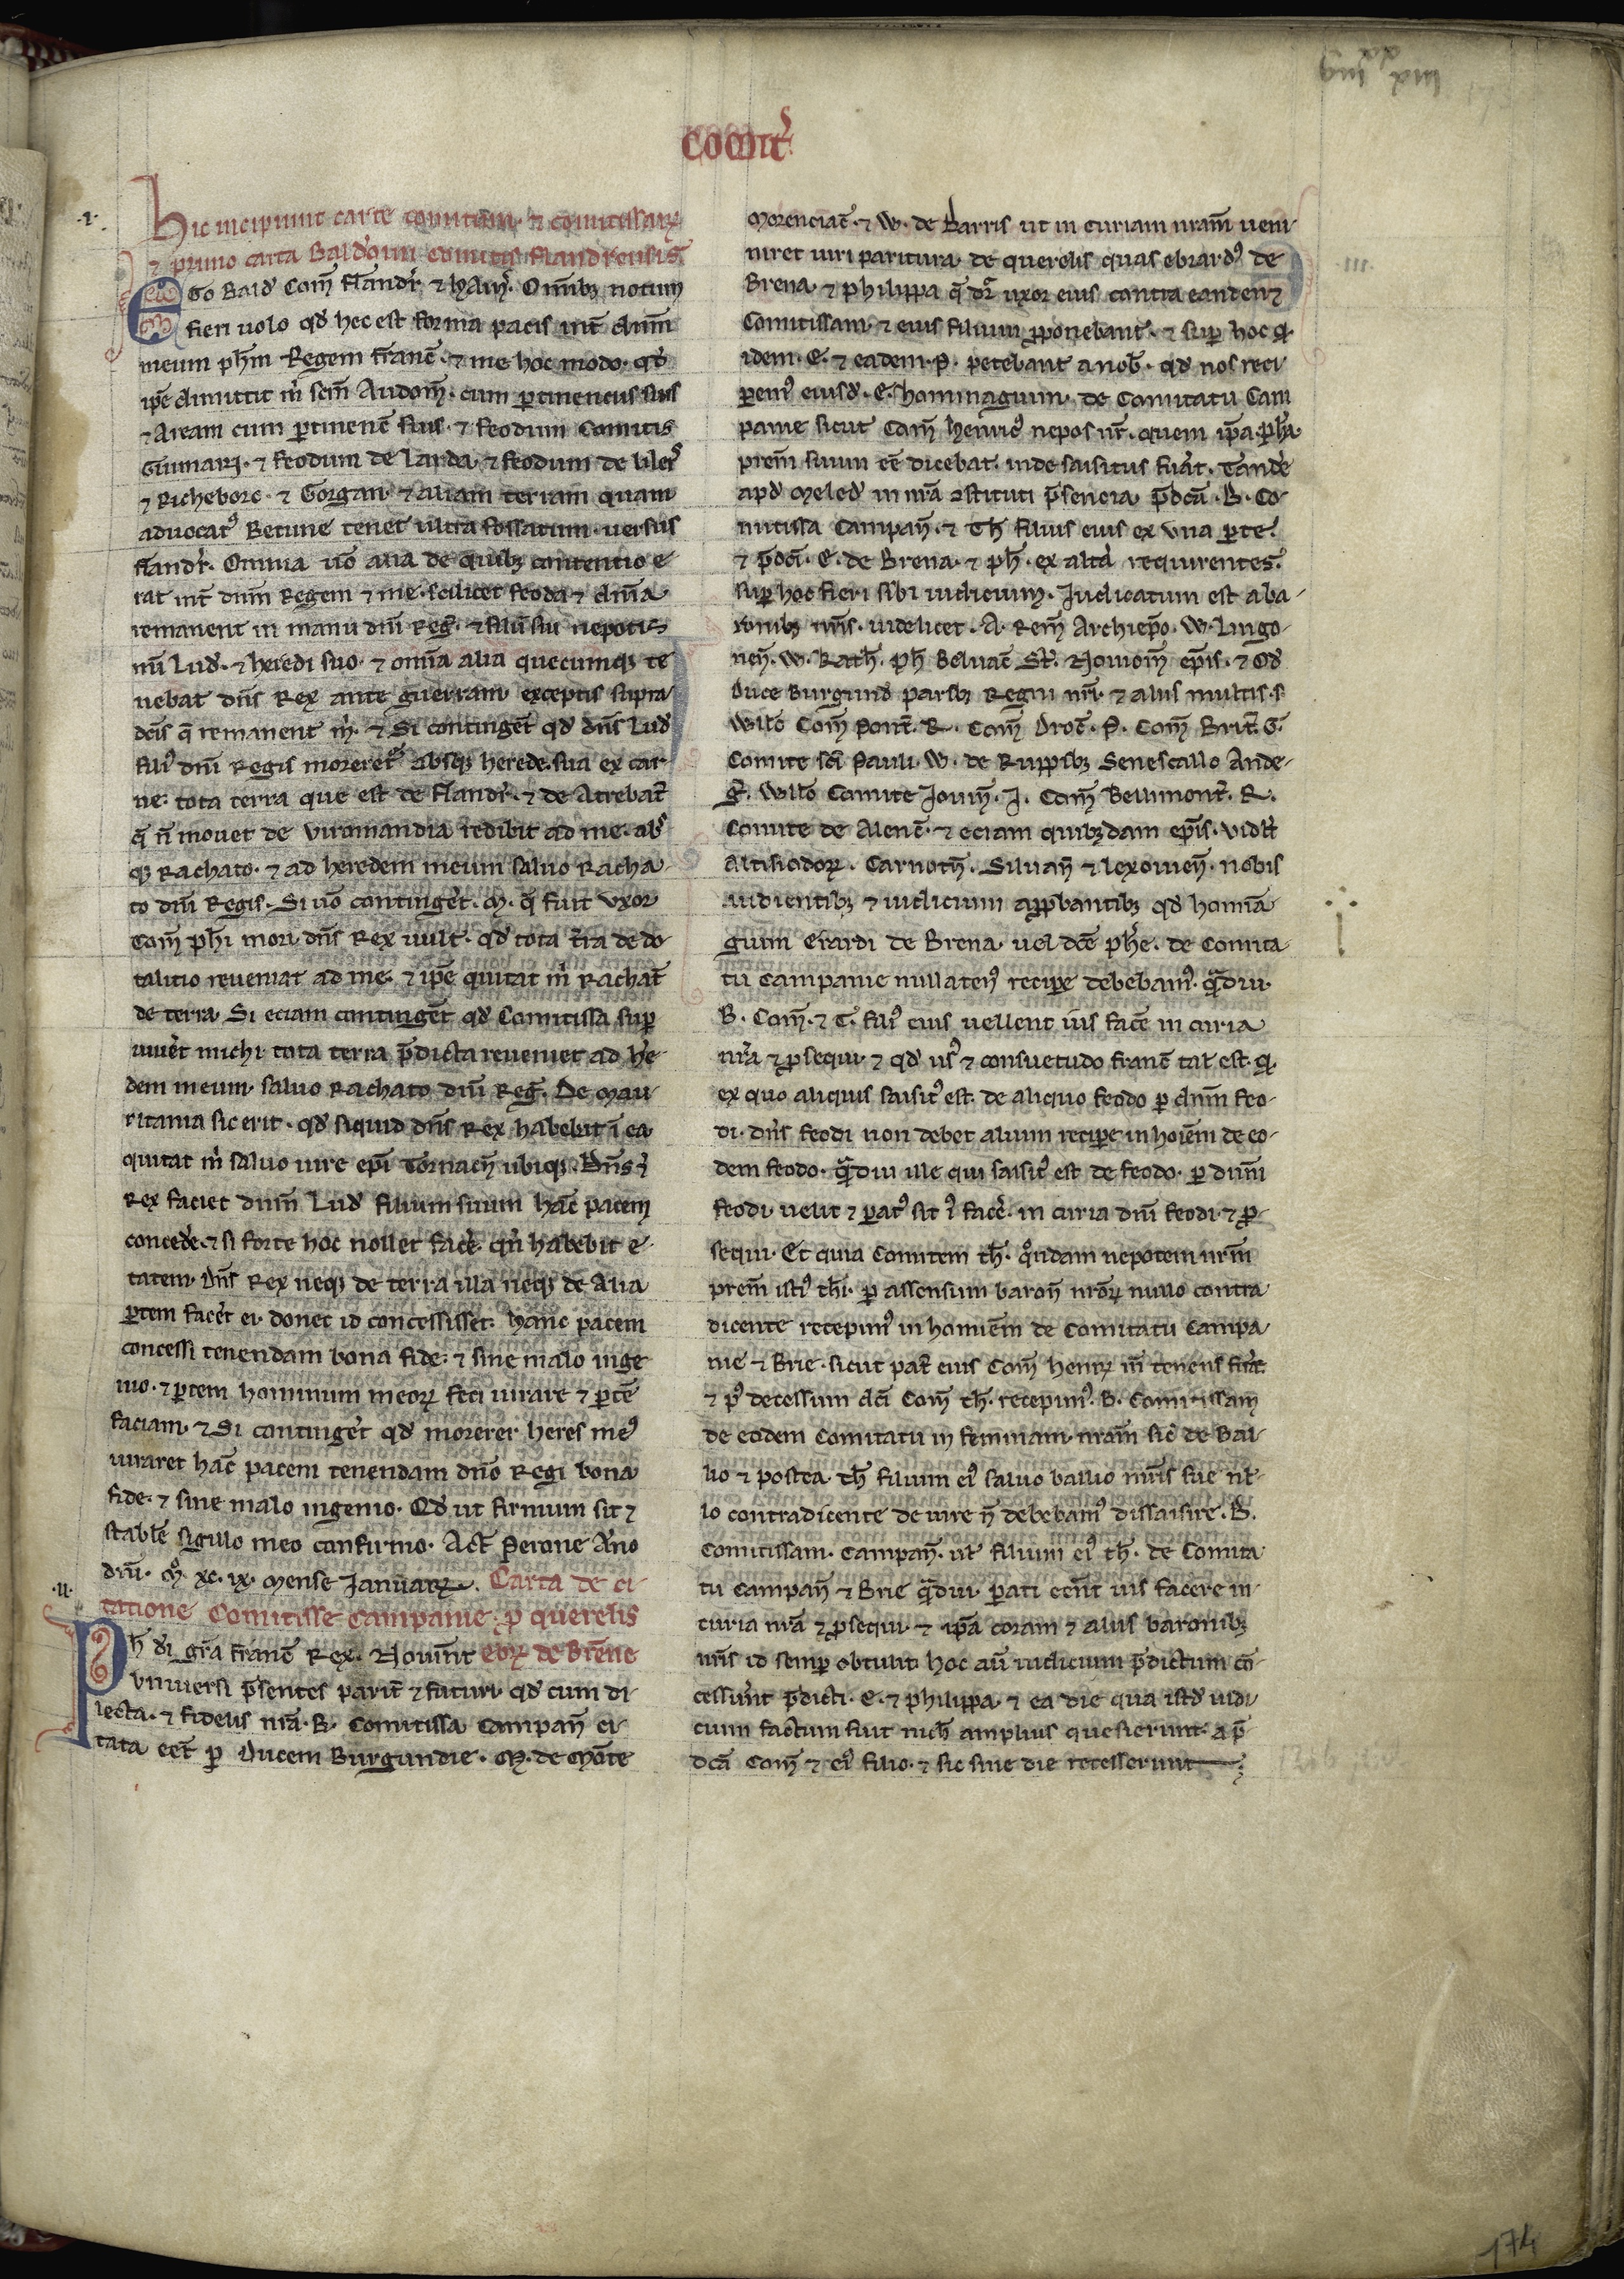 Comit᷑
.i.
Hic incipiunt carte comitum ⁊ comitissaꝝ
⁊ primo carta Baldoini comitis flandrensis
EGo Bald̕ Com̄ flandr̕ ⁊ hayn̕. Om̄ibꝫ notum
fieri uolo qd̕ hec est forma pacis int̕ dn̄m
meum ph̄m Regem franc̄ ⁊ me hoc modo. qd̕
ip̄e dimittit m̕ sc̄m Audom̄. cum ꝑtinenciis suis
⁊ Aream cum ꝑtinenc̄ suis. ⁊ feodum Comitis
⁊ feodum de larda ⁊ feodum de
⁊ Richeborc. ⁊ Gorgan ⁊ aliam terram quam
aduocat᷒ Betune tenet ultra fossatum uersus
flandr̕. Omnia uō alia de quibꝫ contentio e
rat int̕ dn̄m Regem ⁊ me. scilicet feoda ⁊ dn̄ia
remanent in manu dn̄i Reg̕. ⁊ filii sui nepotis
mī Lud̕. ⁊ heredi suo. ⁊ om̄ia alia quecumqꝫ te
nebat dn̄s Rex ante guerram exceptis supra
dc̄is q̄ remanent m̕. ⁊ Si contingēt qd̕ dn̄s Lud̕
fili᷒ dn̄i Regis moreret̕ absqꝫ herede sua ex car
ne: tota terra que est de flandr̕. ⁊ de Atrebat̄
q̄ n̄ mouet de viromandia redibit ad me. abs
qꝫ Rachato. ⁊ ad heredem meum saluo Racha
to dn̄i Regis. Si uō conting̕et. M. q̄ fuit vxor
Com̄ ph̕i mori dn̄s Rex uult. qd̕ tota t̄ra de do
talitio reueniat ad me. ⁊ ip̄e quitat m̕ Rachat̄
de terra. Si eciam contingēt qd̕ Comitissa suꝑ
uiu̕et michi tota terra p̄dicta reueniet ad he̕
dem meum saluo Rachato dn̄i Reg̕. De Mau
ritania sic erit. qd̕ siquid dn̄s Rex habebit ī ea
quitat m̕ saluo iure ep̄i Tornacn̄ ubiqꝫ. Dn̄s ū
Rex faciet dn̄m Lud̕ filium suum hāc pacem
conced̕e. ⁊ si forte hoc nollet fac̕e. qn̕ habebit e
tatem. Dn̄s Rex neqꝫ de terra illa neqꝫ de alia
ꝑtem fac̕et ei. donec id concessisset. hanc pacem
concessi tenendam bona fide: ⁊ sine malo inge
nio. ⁊ ꝑtem hominum meoꝝ feci iurare ⁊ ꝑtē
faciam. ⁊ Si conting̕et qd̕ morerer heres me᷒
iuraret hāc pacem tenendam dn̄o Regi bona
fide. ⁊ sine malo ingenio. Qd̕ ut firmum sit ⁊
stabile sigillo meo confirmo. Act̄ Perone Āno
dn̄i. Mº. xc. ix. Mense Januarii. Carta de ci
.ii.
tatione Comitisse Campanie. ꝑ querelis
Ph̄ di̕ gr̄a franc̄ Rex. Nouint̕ ebꝝ de Brene
vniuersi p̄sentes parit̄ ⁊ futuri qd̕ cum di
lecta. ⁊ fidelis nr̄a. B. Comitissa Campan̄ ci
tata eēt ꝑ Ducem Burgundie. M. de Mōte
Morenciac̄. ⁊ W. de Barris ut in curiam nr̄am ueni
niret iuri paritura de querelis quas ebrard᷒ de
Brena. ⁊ philippa q̄ dr̄ vxor eius contra eandem
Comitissam ⁊ eius filium ꝓponebant. ⁊ suꝑ hoc qꝫ
idem. E. ⁊ eadem. P. petebant a nob̄. qd̕ nos reci
ꝑem᷒ eiusd̕. E. hominagium de Comitatu Cam
panie sicut Com̄ henric᷒ nepos nr̄. quem ip̄a ph̕a
prēm suum eē dicebat. inde saisitus fu̕at. Tand̕e
apd̕ Meled̕ in nr̄a ↄstituti p̄sencia p̄dc̄a. B. Co
mitissa Campan̄. ⁊ Th̄ filius eius ex vna ꝑte.
⁊ p̄dc̄i. E. de Brena. ⁊ ph̄. ex alt̕a requirentes.
suꝑ hoc fieri sibi iudicium. Judicatum est a ba
ronibꝫ nr̄is. uidelicet. A. Rem̄ Archiep̄o. W. Lingo
nen̄. W. Kath̄. ph̄ Beluac̄ St̕. Nouiom̄ ep̄is. ⁊ Od̕
Duce Burgund̕ paribꝫ Regni nr̄i. ⁊ aliis multis. s
Willo Com̄ Pont̄. R. Com̄ Droc̄. P. Com̄ Brit̄. G.
Comite sc̄i Pauli. W. de Ruppibꝫ Senescallo Ande
g̕. Willo Comite Jouin̄. J. Com̄ Bellimont̄. R.
Comite de Alenc̄. ⁊ eciam quibꝫdam ep̄is. uidlt̕
Altisiodoꝝ. Carnotn̄. Siluan̄ ⁊ lexouien̄. nobis
audientibꝫ ⁊ iudicium aꝓbantibꝫ qd̕ homina
gium Erardi de Brena. uel dc̄e ph̕e. de Comita
tu Campanie nullaten᷒ reciꝑe debebam᷒. qͣdiu
B. Com̄. ⁊ T. fili᷒ eius uellent ius facē in curia
nr̄a ⁊ ꝓsequi. ⁊ qd̕ us᷒ ⁊ consuetudo franc̄ tal̄ est. qꝫ
ex quo aliquis saisit᷒ est. de aliquo feodo ꝑ dn̄m feo
di. dn̄s feodi non debet alium reciꝑe in hoīem de eo
dem feodo. qͣdiu ille qui saisit᷒ est de feodo. ꝑ dn̄m
feodi. uelit ⁊ ꝑat᷒ sit i᷒ fac̕e. in curia dn̄i feodi. ⁊ ꝓ
sequi. Et quia Comitem th̄. qͦndam nepotem nr̄m
prēm isti᷒ th̄i. ꝑ assensum baron̄ nr̄oꝝ nullo contra
dicente recepim᷒ in hominem de Comitatu Campa
nie ⁊ Brie. sicut pat̄ eius Com̄ henrꝝ in̄ tenens fu̕at
⁊ p᷒ decessum dc̄i Com̄ th̄. recepim᷒. B. Comitissam
de eodem Comitatu in feminam nr̄am sic̕ de Bal
lio ⁊ postea th̄ filium ei᷒ saluo ballio mr̄is sue nl̄
lo contradicente de iure n̄ debebam᷒ dissaisire. B.
Comitissam. Campan̄. ul̄ filium ei᷒ th̄. de Comita
tu Campan̄ ⁊ Brie qͣdiu ꝑati eēnt ius facere in
curia nr̄a ⁊ ꝓsequi. ⁊ ip̄a coram ⁊ aliis baronibꝫ
nr̄is id semꝑ obtulit. hoc aū iudicium p̄dictum cō
cesser̄unt p̄dicti. E. ⁊ philippa. ⁊ ea die qua istd̕ iudi
cium factum fuit nich̄ amplius quesierunt a p̄
dc̄a Com̄ ⁊ ei᷒ filio. ⁊ sic sine die recesserunt
174